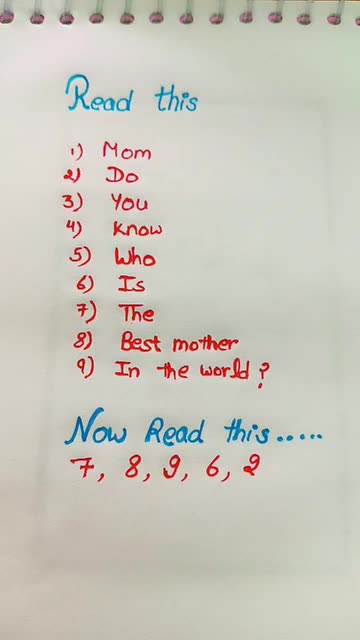 Read this
1) Mom
2) Do
3) You
4) Know
5) Who
6) Is
7) The
8) Best mother
9) In the world?
Now Read this.....
7, 8, 9, 6, 2